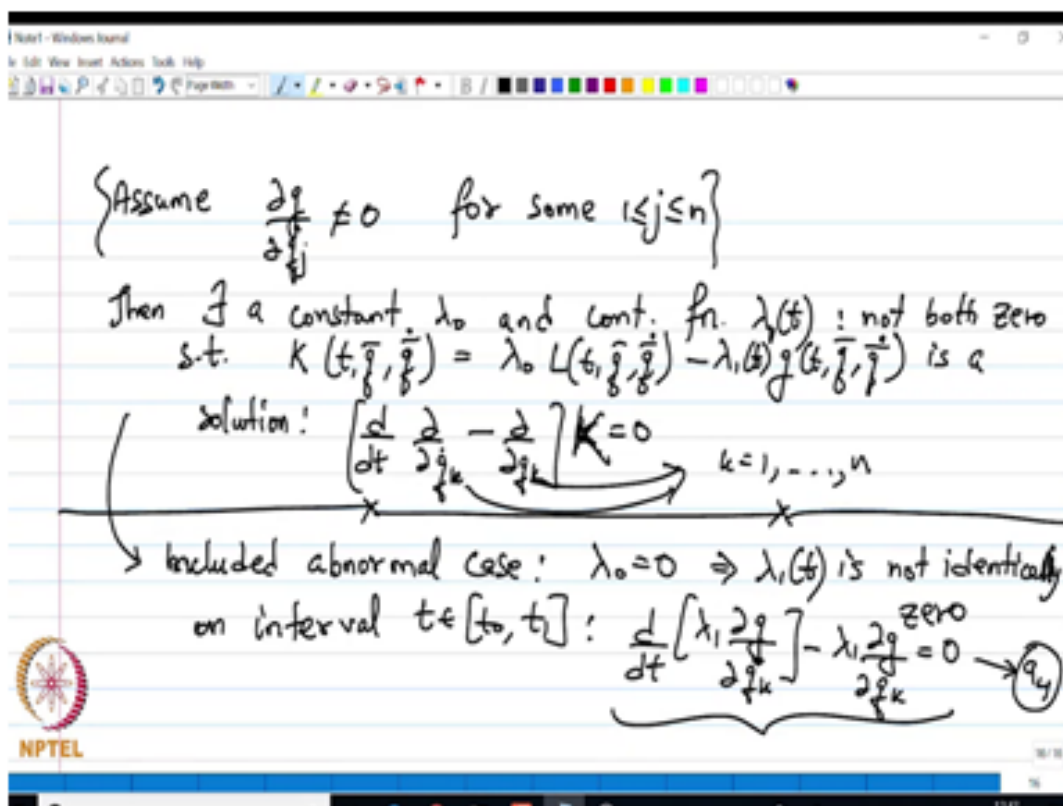 Note1 - Windows Journal
Edit View Insert Actions Tools Help
Page Width
B I
{Assume ∂g/∂q̇_j ≠ 0 for some 1≤j≤n}
Then ∃ a constant λ₀ and cont. fn. λ₁(t) : not both zero
s.t. K(t, q̄, q̄̇) = λ₀ L(t, q̄, q̄̇) - λ₁(t) g(t, q̄, q̄̇) is a
solution: [d/dt ∂/∂q̇_k - ∂/∂q_k] K = 0
k=1, ..., n
→ Included abnormal case: λ₀=0 ⇒ λ₁(t) is not identically
zero
on interval t∈[t₀, t₁] : d/dt [λ₁ ∂g/∂q̇_k] - λ₁ ∂g/∂q_k = 0 → (a₄)
NPTEL
16